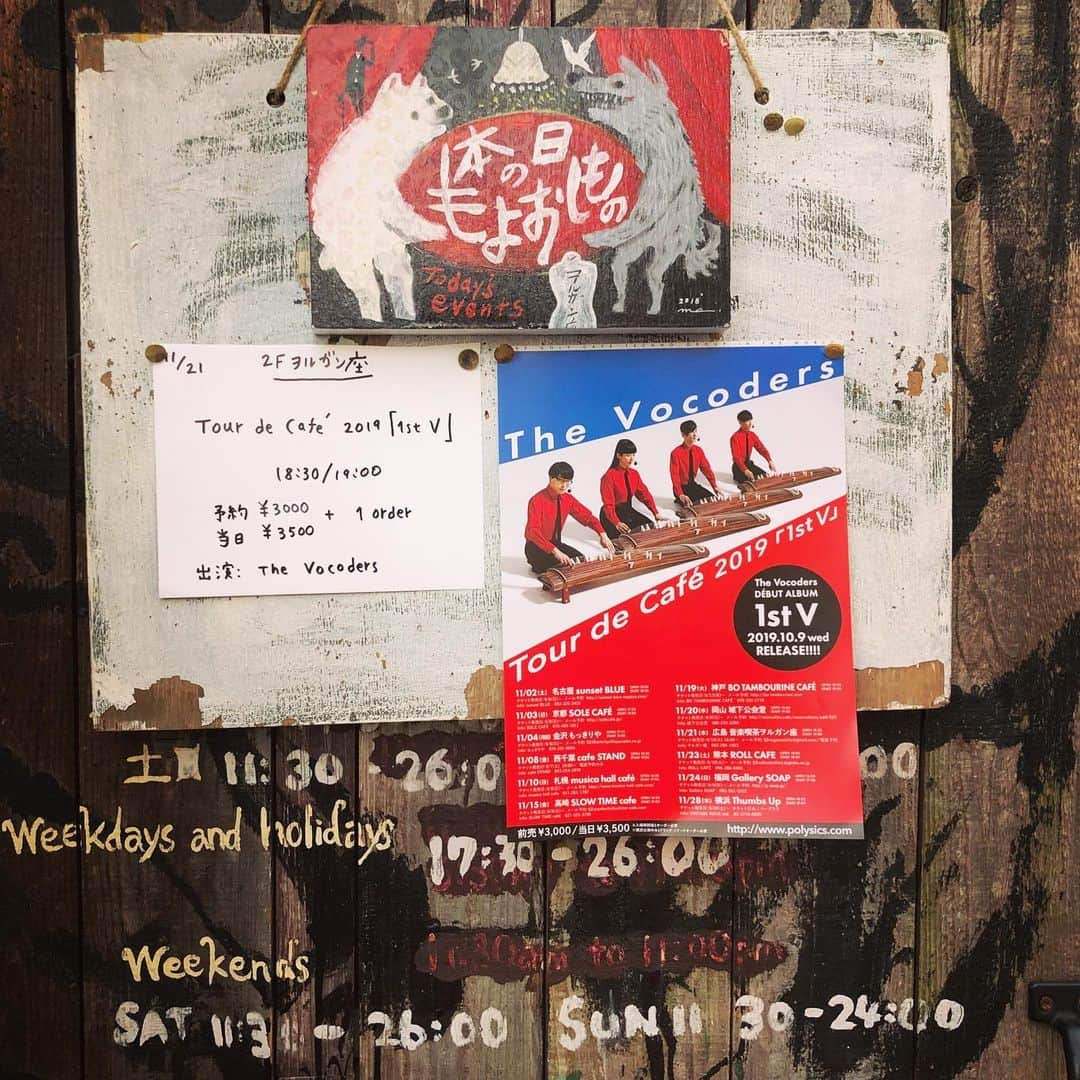 本の日
もよおしもの
Today's
events
ヲルガン座
2018
11/21 2Fヲルガン座
Tour de Café 2019「1st V」
18:30/19:00
予約 ¥3000 + 1 order
当日 ¥3500
出演: The Vocoders
The Vocoders
Tour de Café 2019「1st V」
The Vocoders
DÉBUT ALBUM
1st V
2019.10.9 wed
RELEASE!!!!
11/02(土) 名古屋 sunset BLUE
11/03(日) 京都 SOLE CAFÉ
11/04(月祝) 金沢 もっきりや
11/08(金) 西千葉 cafe STAND
11/10(日) 札幌 musica hall café
11/15(金) 高崎 SLOW TIME cafe
11/19(火) 神戸 BO TAMBOURINE CAFÉ
11/20(水) 岡山 城下公会堂
11/21(木) 広島 音楽喫茶ヲルガン座
11/23(土) 熊本 ROLL CAFÉ
11/24(日) 福岡 Gallery SOAP
11/28(木) 横浜 Thumbs Up
前売¥3,000/当日¥3,500
http://www.polysics.com
土 11:30 - 26:0
00
Weekdays and holidays
17:30-26:00
Weekends
11:30am to 11:00pm
SAT 11:3 - 26:00 SUN 11 30-24:00